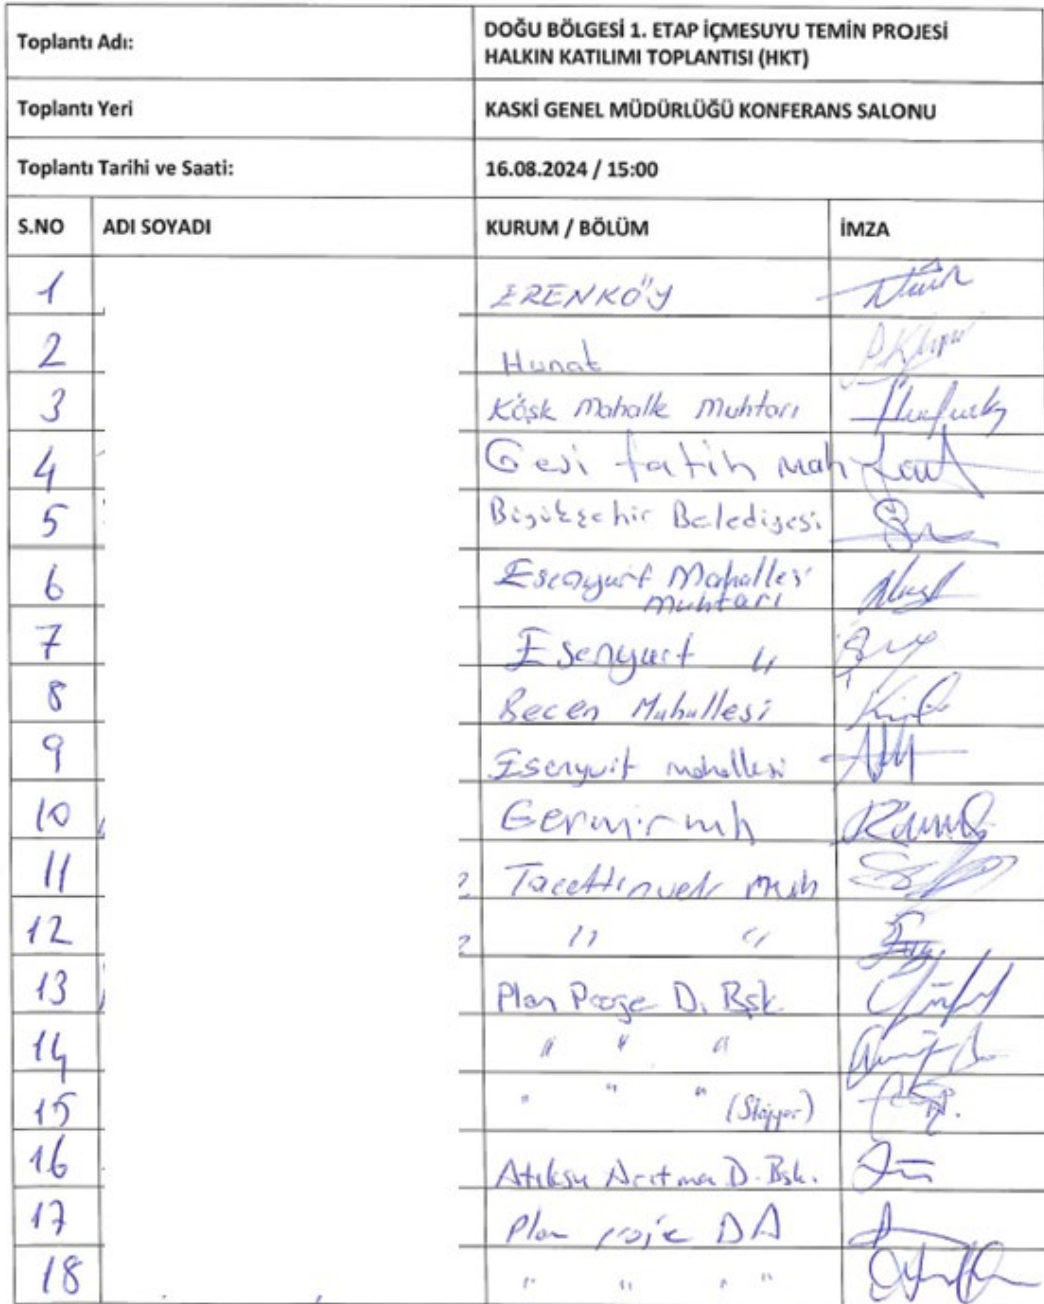 Toplantı Adı: DOĞU BÖLGESİ 1. ETAP İÇMESUYU TEMİN PROJESİ
HALKIN KATILIMI TOPLANTISI (HKT)
Toplantı Yeri KASKİ GENEL MÜDÜRLÜĞÜ KONFERANS SALONU
Toplantı Tarihi ve Saati: 16.08.2024 / 15:00
S.NO ADI SOYADI KURUM / BÖLÜM İMZA
1 ERENKÖY
2 Hunat
3 Köşk Mahalle Muhtarı
4 Gesi fatih mah
5 Büyükşehir Belediyesi
6 Esenyurt Mahallesi
muhtarı
7 Esenyurt "
8 Becen Mahallesi
9 Esenyurt mahallesi
10 Germir mh
11 Tacettinveli Mah
12 " "
13 Plan Proje D. Bşk.
14 " " "
15 " " " (Stajyer)
16 Atıksu Arıtma D. Bşk.
17 Plan proje DA
18 " " " "